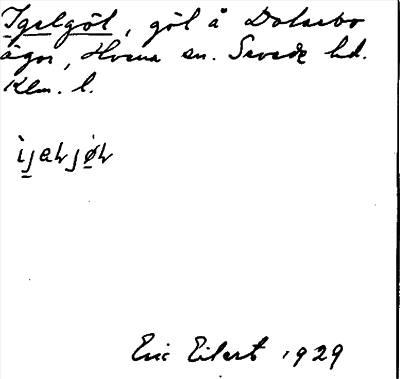 Igelgöl, göl å Dalsebo
ägor, Hvena sn. Sevede hd.
Klm. l.
Eric Eilert 1929